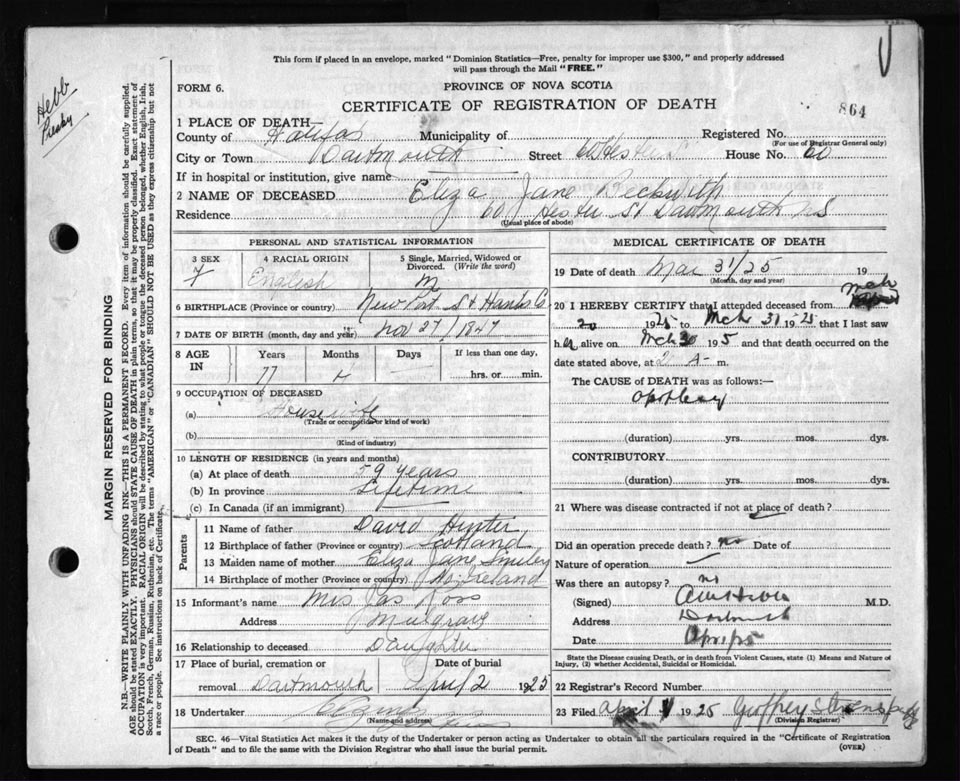 This form if placed in an envelope, marked "Dominion Statistics—Free, penalty for improper use $300," and properly addressed
will pass through the Mail "FREE."
Hebb
Presby
FORM 6.
PROVINCE OF NOVA SCOTIA
CERTIFICATE OF REGISTRATION OF DEATH
864
1 PLACE OF DEATH—
County of Halifax Municipality of Registered No.
(For use of Registrar General only)
City or Town Dartmouth Street 60 Hester St House No. 60
If in hospital or institution, give name
2 NAME OF DECEASED Eliza Jane Beckwith
Residence 60 Hester St Dartmouth NS
(Usual place of abode)
PERSONAL AND STATISTICAL INFORMATION
3 SEX 4 RACIAL ORIGIN 5 Single, Married, Widowed or Divorced. (Write the word)
F English M
6 BIRTHPLACE (Province or country) New Port Hants Co
7 DATE OF BIRTH (month, day and year) Nov 27/1847
8 AGE IN Years Months Days If less than one day,
77 hrs. or min.
9 OCCUPATION OF DECEASED
(a) Housewife
(Trade or occupation or kind of work)
(b)
(Kind of industry)
10 LENGTH OF RESIDENCE (in years and months)
(a) At place of death 59 years
(b) In province Lifetime
(c) In Canada (if an immigrant)
Parents
11 Name of father David Hunter
12 Birthplace of father (Province or country) Scotland
13 Maiden name of mother Eliza Jane Smiley
14 Birthplace of mother (Province or country) No. Ireland
15 Informant's name Mrs Jas Ross
Address Mulgrave
16 Relationship to deceased Daughter
17 Place of burial, cremation or Date of burial
removal Dartmouth April 2 1925
18 Undertaker
(Name and address)
MEDICAL CERTIFICATE OF DEATH
19 Date of death Mar 31/25 19
(Month, day and year)
20 I HEREBY CERTIFY that I attended deceased from Mch
20 1925 to Mch 31 1925 that I last saw
her alive on Mch 30 1925 and that death occurred on the
date stated above, at 2 A- m.
The CAUSE OF DEATH was as follows:—
Apoplexy
(duration) yrs. mos. dys.
CONTRIBUTORY
(duration) yrs. mos. dys.
21 Where was disease contracted if not at place of death?
Did an operation precede death? no Date of
Nature of operation
Was there an autopsy? no
(Signed) M.D.
Address Dartmouth
Date
State the Disease causing Death, or in death from Violent Causes, state (1) Means and Nature of
Injury, (2) whether Accidental, Suicidal or Homicidal.
22 Registrar's Record Number
23 Filed April 1925 Geoffrey Stevens
(Division Registrar)
SEC. 46—Vital Statistics Act makes it the duty of the Undertaker or person acting as Undertaker to obtain all the particulars required in the "Certificate of Registration
of Death" and to file the same with the Division Registrar who shall issue the burial permit. (OVER)
MARGIN RESERVED FOR BINDING
N.B.—WRITE PLAINLY WITH UNFADING INK—THIS IS A PERMANENT RECORD. Every item of information should be carefully supplied.
AGE should be stated EXACTLY. PHYSICIANS should STATE CAUSE OF DEATH in plain terms, so that it may be properly classified. Exact statement of
OCCUPATION is very important. RACIAL ORIGIN will be described by stating to what people or tongue the deceased person belonged, whether English, Irish,
Scotch, French, German, Russian, Ruthenian, etc. The terms "AMERICAN" or "CANADIAN" SHOULD NOT BE USED as they express citizenship but not
a race or people. See instructions on back of Certificate.